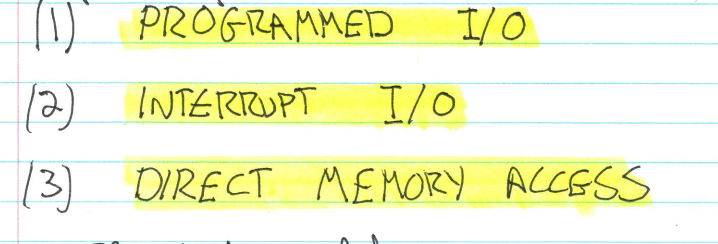 (1) PROGRAMMED I/O
(2) INTERRUPT I/O
(3) DIRECT MEMORY ACCESS